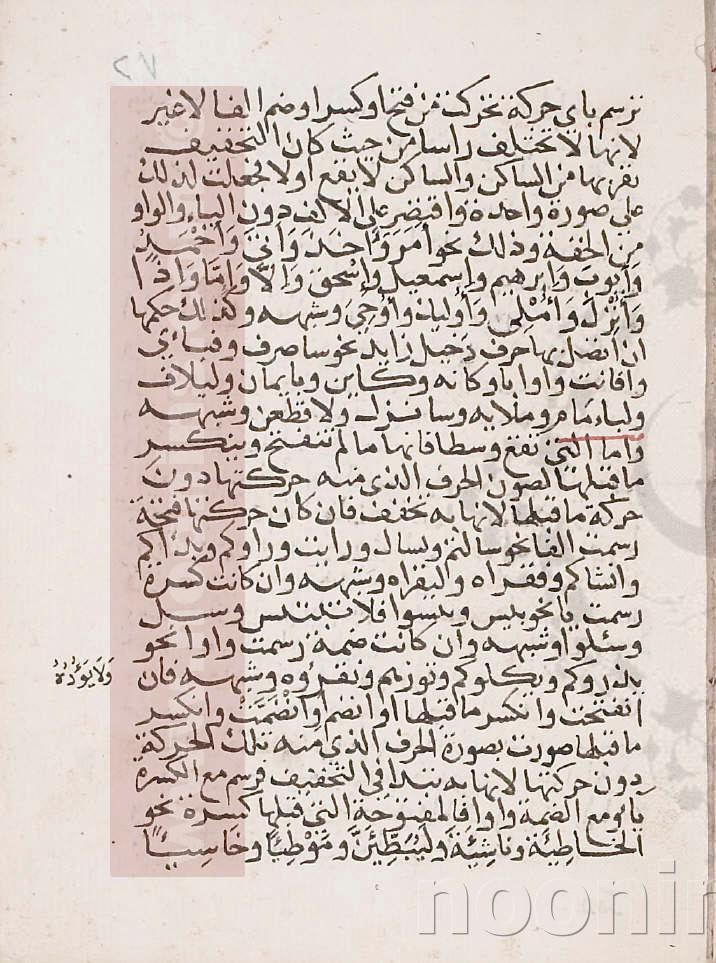 ٢٧
ترسم باي حركة تحركت من فتح او كسر او ضم الفا لا غير
لانها لا تختلف راسا من حيث كان التخفيف
يقربها من الساكن والساكن لا يقع اولا فجعلت لذلك
على صورة واحدة واقتصر على الالف دون الياء والواو
من الخفة وذلك نحو امر وَاَخَذَ وَاتى وَاَحْمَد
وَاَيّوبَ وَاِبرهيم وَاِسمعيل وَاِسْحق وَاِلّا وَاِمَّا وَاِذا
وَاُنْزِلَ وَاُمْلِى وَاُوليك وَاُوحِيَ وشبهه وكذلك حكمها
ان اتصل بها حرف دخيل زايد نحو ساصرف وفباي
وافانت وكانه وكاين وبايمان ولايلاف
ولبامام وسانزل ولاقطعن وشبهه
واما التي تقع وسطا فانها ما لم تنفتح وينكسر
ما قبلها لصورة الحرف الذي منه حركتها دون
حركة ما قبلها لانها به تخفف فان كانت حركتها فتحة
رسمت الفا نحو سالتم ويسال ورايت وراوكم وبداكم
وانشاكم وفقراه وليقراه وشبهه وان كانت كسرة
رسمت يا نحو يىس ويىسوا فلا تبتىس وسىل
وسئلوا وشبهه وان كانت ضمة رسمت واوا نحو
يذروكم ويكلوكم وتوزهم ونقرؤه وشبهه فان
وَلَا يَؤُدُهُ
انفتحت وانكسر ما قبلها او انضم او انْضَمَّتْ وانكسر
ما قبلها صورت بصورة الحرف الذي منه تلك الحركة
دون حركتها لانها به تبدل في التخفيف فترسم مع الكسرة
ياء ومع الضمة واوا فالمفتوحة التي قبلها كسرة نحو
الخَاطِئَة وناشِئَةَ وَلَيُبَطِّئَنَّ وَمَوْطِئًا وخَاسِئًا
noonin